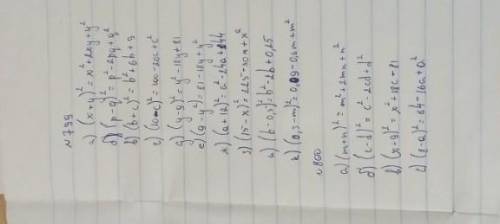 №799
а) (x+y)²=x²+2xy+y²
б) (p-q)²=p²-2pq+q²
в) (b+c)²=b²+6b+9
г) (10-c)²=100-20c+c²
д) (y-9)²=y²-18y+81
е) (9-y)²=81-18y+y²
ж) (a+12)²=a²-24a+144
з) (15-x)²=225-30x+x²
и) (b-0,5)²=b²-2b+0,25
к) (0,3-m)²=0,09-0,6m+m²
№800
а) (m+n)²=m²+2mn+n²
б) (c-d)²=c²-2cd+d²
в) (x+9)²=x²+18x+81
г) (8-a)²=64-16a+a²